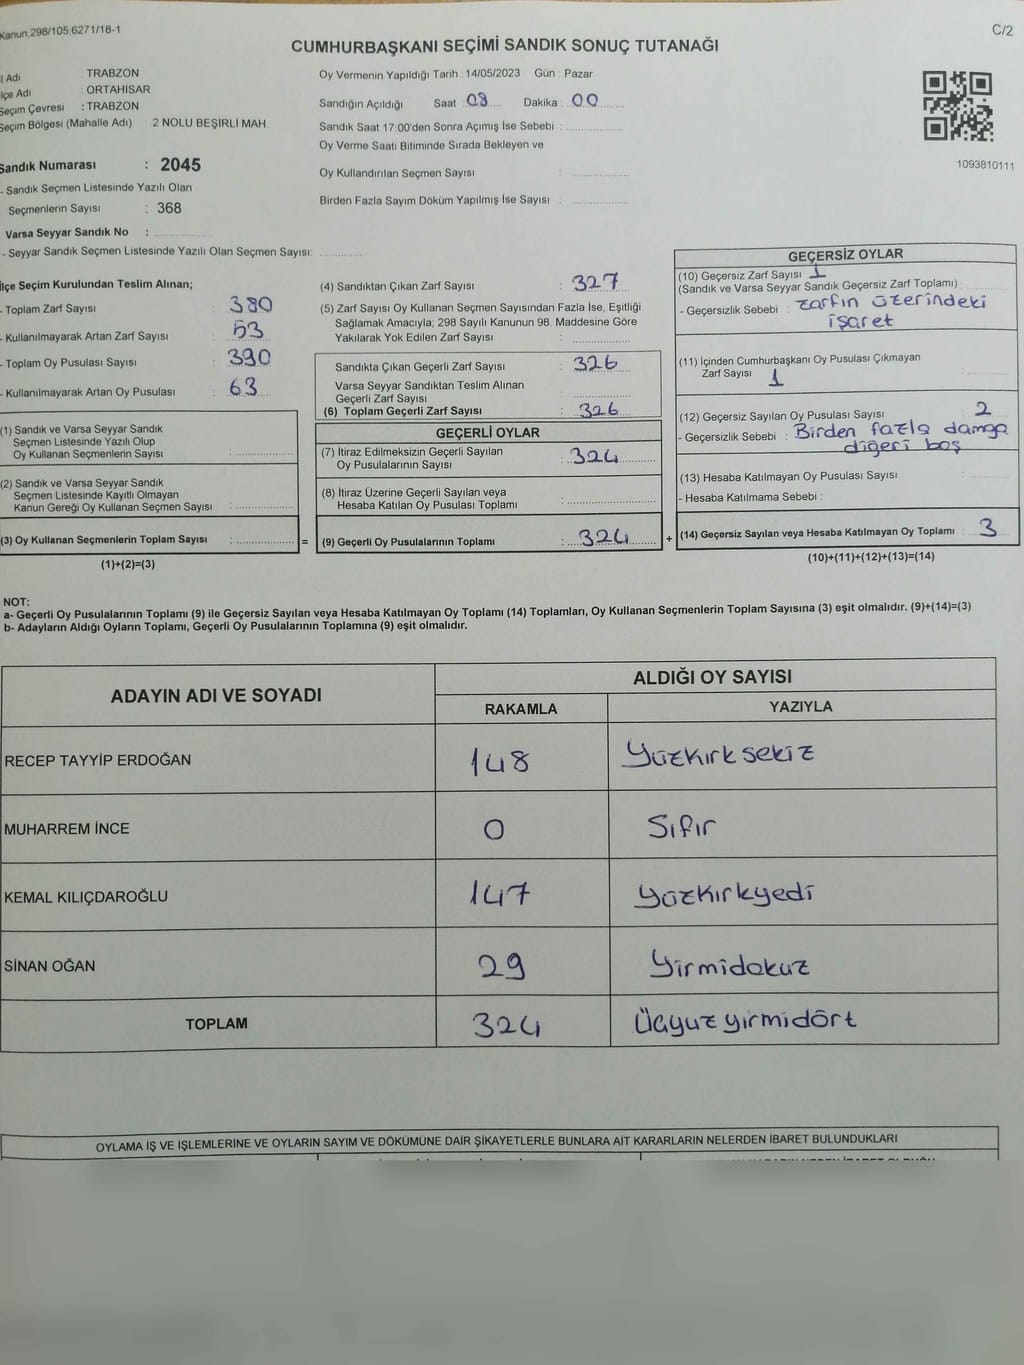 Kanun 298/105,6271/18-1
C/2
CUMHURBAŞKANI SEÇİMİ SANDIK SONUÇ TUTANAĞI
l Adı : TRABZON
lçe Adı : ORTAHİSAR
Seçim Çevresi : TRABZON
Seçim Bölgesi (Mahalle Adı) : 2 NOLU BEŞİRLİ MAH.
Sandık Numarası : 2045
- Sandık Seçmen Listesinde Yazılı Olan
Seçmenlerin Sayısı : 368
Varsa Seyyar Sandık No :
- Seyyar Sandık Seçmen Listesinde Yazılı Olan Seçmen Sayısı:
Oy Vermenin Yapıldığı Tarih : 14/05/2023 Gün : Pazar
Sandığın Açıldığı Saat 08 Dakika : 00
Sandık Saat 17:00'den Sonra Açımış İse Sebebi :
Oy Verme Saati Bitiminde Sırada Bekleyen ve
Oy Kullandırılan Seçmen Sayısı :
Birden Fazla Sayım Döküm Yapılmış İse Sayısı :
1093810111
İlçe Seçim Kurulundan Teslim Alınan;
- Toplam Zarf Sayısı : 380
- Kullanılmayarak Artan Zarf Sayısı : 53
- Toplam Oy Pusulası Sayısı : 390
- Kullanılmayarak Artan Oy Pusulası : 63
(1) Sandık ve Varsa Seyyar Sandık
Seçmen Listesinde Yazılı Olup
Oy Kullanan Seçmenlerin Sayısı :
(2) Sandık ve Varsa Seyyar Sandık
Seçmen Listesinde Kayıtlı Olmayan
Kanun Gereği Oy Kullanan Seçmen Sayısı :
(3) Oy Kullanan Seçmenlerin Toplam Sayısı : =
(1)+(2)=(3)
(4) Sandıktan Çıkan Zarf Sayısı : 327
(5) Zarf Sayısı Oy Kullanan Seçmen Sayısından Fazla İse, Eşitliği
Sağlamak Amacıyla; 298 Sayılı Kanunun 98. Maddesine Göre
Yakılarak Yok Edilen Zarf Sayısı :
Sandıkta Çıkan Geçerli Zarf Sayısı : 326
Varsa Seyyar Sandıktan Teslim Alınan
Geçerli Zarf Sayısı :
(6) Toplam Geçerli Zarf Sayısı : 326
GEÇERLİ OYLAR
(7) İtiraz Edilmeksizin Geçerli Sayılan
Oy Pusulalarının Sayısı : 324
(8) İtiraz Üzerine Geçerli Sayılan veya
Hesaba Katılan Oy Pusulası Toplamı :
(9) Geçerli Oy Pusulalarının Toplamı : 324 +
GEÇERSİZ OYLAR
(10) Geçersiz Zarf Sayısı 1
(Sandık ve Varsa Seyyar Sandık Geçersiz Zarf Toplamı) :
- Geçersizlik Sebebi : zarfın üzerindeki
işaret
(11) İçinden Cumhurbaşkanı Oy Pusulası Çıkmayan
Zarf Sayısı 1 :
(12) Geçersiz Sayılan Oy Pusulası Sayısı : 2
- Geçersizlik Sebebi : Birden fazla damga
diğeri boş
(13) Hesaba Katılmayan Oy Pusulası Sayısı :
- Hesaba Katılmama Sebebi :
(14) Geçersiz Sayılan veya Hesaba Katılmayan Oy Toplamı : 3
(10)+(11)+(12)+(13)=(14)
NOT:
a- Geçerli Oy Pusulalarının Toplamı (9) ile Geçersiz Sayılan veya Hesaba Katılmayan Oy Toplamı (14) Toplamları, Oy Kullanan Seçmenlerin Toplam Sayısına (3) eşit olmalıdır. (9)+(14)=(3)
b- Adayların Aldığı Oyların Toplamı, Geçerli Oy Pusulalarının Toplamına (9) eşit olmalıdır.
ADAYIN ADI VE SOYADI ALDIĞI OY SAYISI
RAKAMLA YAZIYLA
RECEP TAYYİP ERDOĞAN 148 Yüzkırksekiz
MUHARREM İNCE 0 Sıfır
KEMAL KILIÇDAROĞLU 147 yüzkırkyedi
SİNAN OĞAN 29 Yirmidokuz
TOPLAM 324 Üçyuzyirmidört
OYLAMA İŞ VE İŞLEMLERİNE VE OYLARIN SAYIM VE DÖKÜMÜNE DAİR ŞİKAYETLERLE BUNLARA AİT KARARLARIN NELERDEN İBARET BULUNDUKLARI